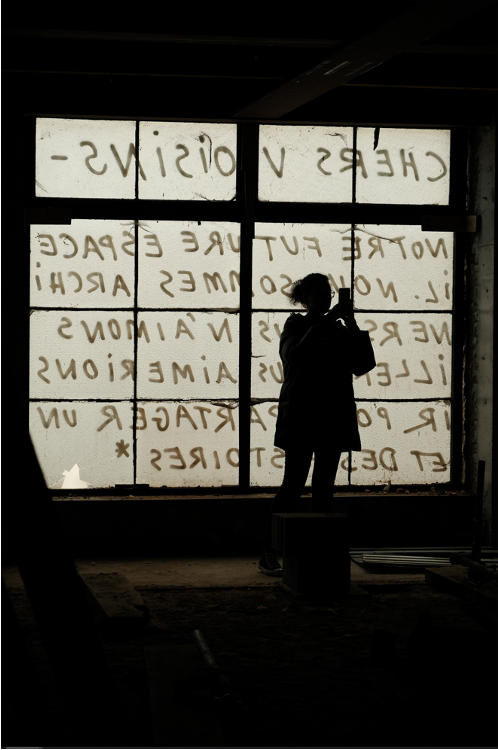 CHERS VOISINS -
NOTRE FUTURE ESPACE
IL. NOUS SOMMES ARCHI
NERS N'AIMONS
AIMERIONS
IR PARTAGER UN
ET DES
*